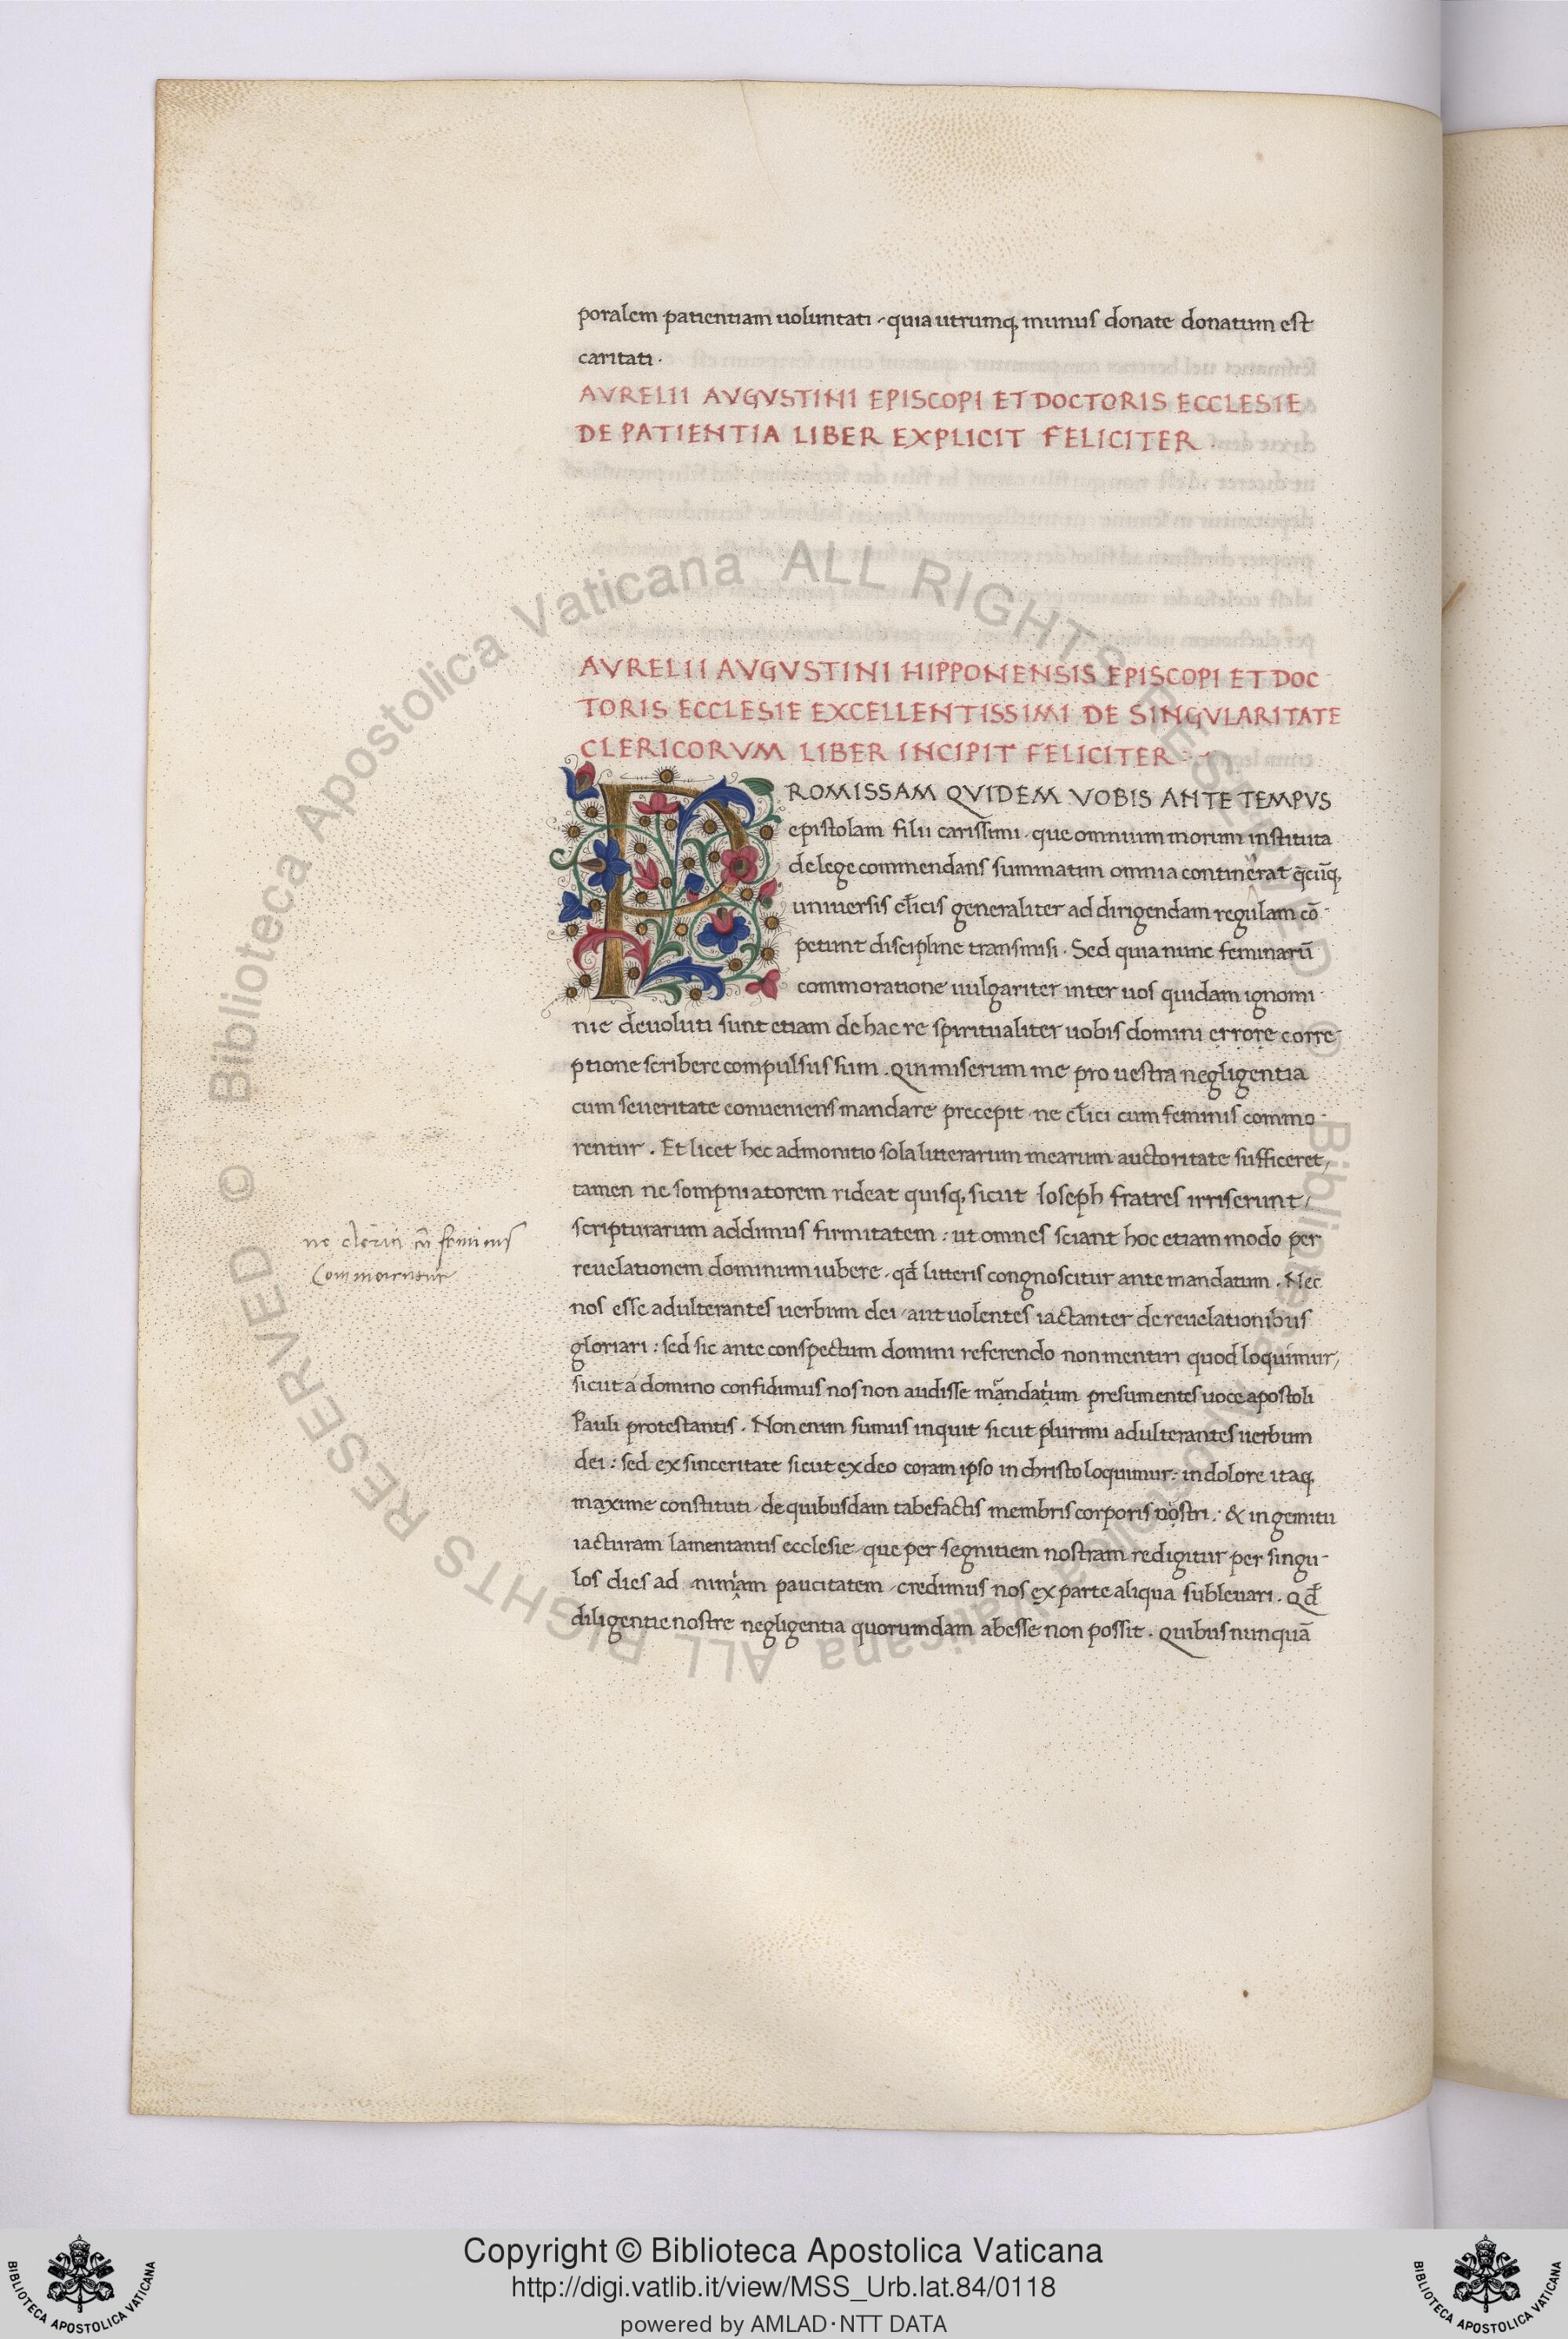 poralem patientiam uoluntati, quia utrumq; munus donate donatum est
caritati.
AVRELII AVGVSTINI EPISCOPI ET DOCTORIS ECCLESIE
DE PATIENTIA LIBER EXPLICIT FELICITER.
AVRELII AVGVSTINI HIPPONENSIS EPISCOPI ET DOC
TORIS ECCLESIE EXCELLENTISSIMI DE SINGVLARITATE
CLERICORVM LIBER INCIPIT FELICITER
PROMISSAM QVIDEM VOBIS ANTE TEMPVS
epistolam filii carissimi. que omnium morum instituta
de lege commendans summatim omnia continerat q̄cūq;
uniuersis cl̄icis generaliter ad dirigendam regulam cō-
petunt discipline transmisi. Sed quia nunc feminarū
commoratione uulgariter inter uos quidam ignomi-
nie deuoluti sunt etiam de hac re spiritualiter uobis domini errore corre-
ptione scribere compulsus sum. Qui miserum me pro uestra negligentia
cum seueritate conueniens mandare precepit, ne cl̄ici cum feminis commo-
rentur. Et licet hec admonitio sola litterarum mearum auctoritate sufficeret,
tamen ne sompniatorem rideat quisq; sicut Ioseph fratres irriserunt,
scripturarum addimus firmitatem: ut omnes sciant hoc etiam modo per
reuelationem dominum iubere, qd̄ litteris congnoscitur ante mandatum. Nec
nos esse adulterantes uerbum dei, aut uolentes iactanter de reuelationibus
gloriari: sed sic ante conspectum domini referendo non mentiri quod loquimur,
sicut a domino confidimus nos non audisse mandatum presumentes uoce apostoli
Pauli protestantis. Non enim sumus inquit sicut plurimi adulterantes uerbum
dei: sed ex sinceritate sicut ex deo coram ipso in christo loquimur: in dolore itaq;
maxime constituti, de quibusdam tabefactis membris corporis nostri: & in gemitu
iacturam lamentantis ecclesie, que per segnitiem nostram redigitur per singu-
los dies ad nimiam paucitatem, credimus nos ex parte aliqua subleuari. Qd̄
diligentie nostre negligentia quorumdam abesse non possit. Quibus nunquā
ne clerici cū feminis
Commorentur
© Biblioteca Apostolica Vaticana ALL RIGHTS RESERVED © Biblioteca Apostolica Vaticana ALL RIGHTS RESERVED
Copyright © Biblioteca Apostolica Vaticana
http://digi.vatlib.it/view/MSS_Urb.lat.84/0118
powered by AMLAD·NTT DATA
BIBLIOTECA APOSTOLICA VATICANA
BIBLIOTECA APOSTOLICA VATICANA